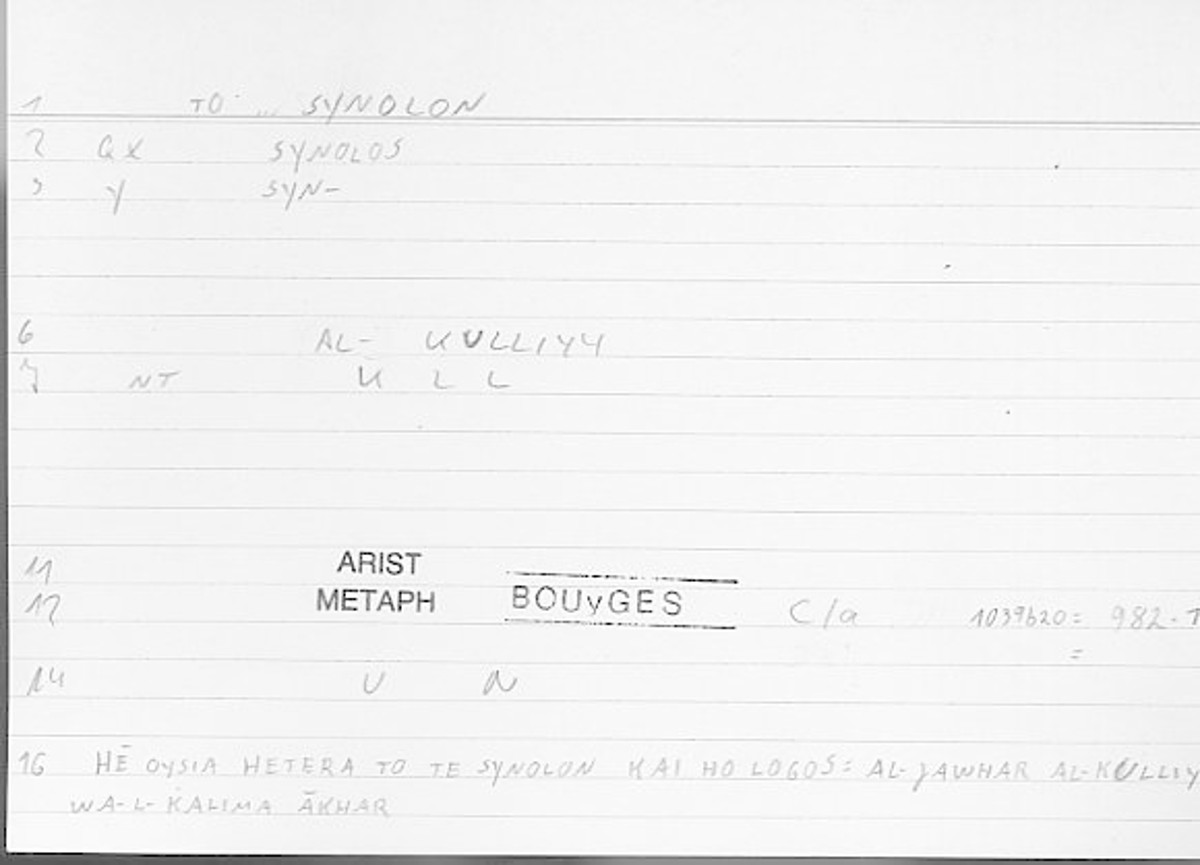 1 TO ... SYNOLON
2 ax SYNOLOS
3 y SYN-
6 AL- KULLIYY
7 NT K L L
11 ARIST
12 METAPH BOUyGES C/a 1039b20= 982.
=
14 U N
16 HĒ OYSIA HETERA TO TE SYNOLON KAI HO LOGOS: AL-JAWHAR AL-KULLIY
WA-L-KALIMA ĀKHAR